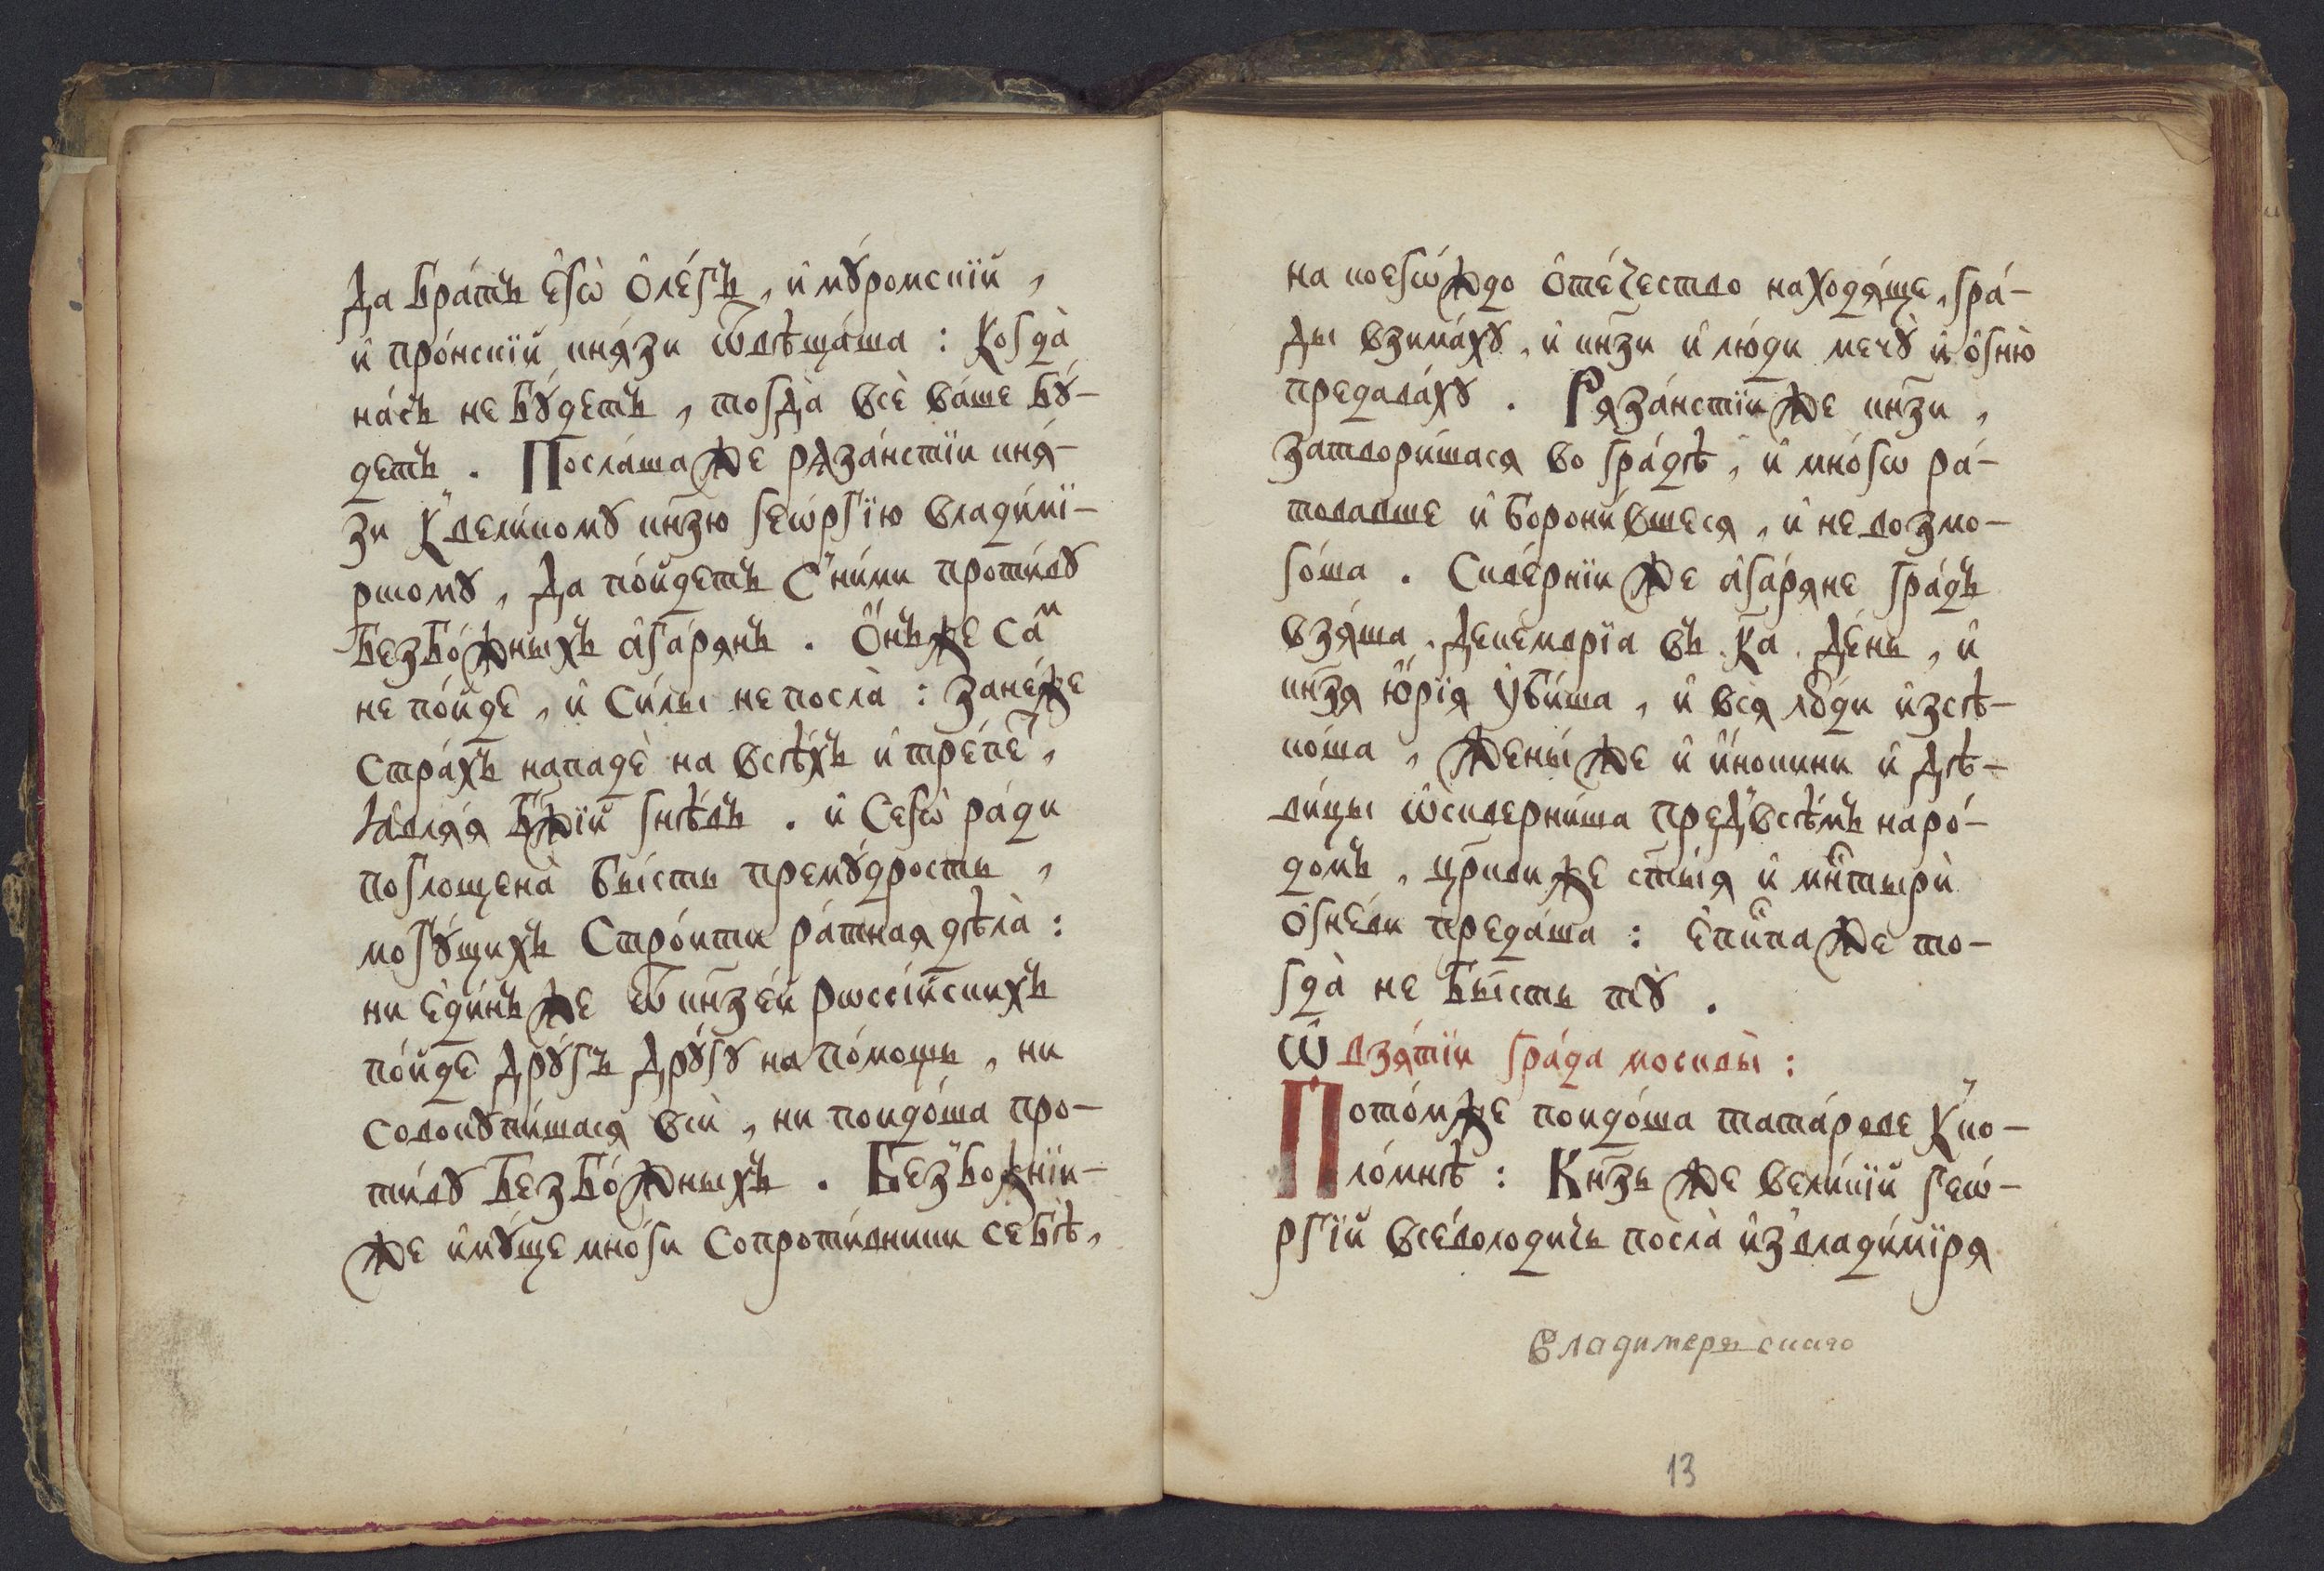 Да бра́тъ є҆гѡ̀ ѻ҆ле́гъ, и҆ мꙋ́ромскїй,
и҆ про́нскїй кня́зи ѿвѣща́ша : Когда̀
на́съ не бꙋ́детъ, тогда̀ всѐ ва́ше бꙋ́-
детъ . Посла́ша же рѧза́нстїи кня́-
зи К̾ вели́комꙋ кн҃зю геѡ́ргїю влади́мї-
рскомꙋ, Да по́йдетъ С̾ ни́ми проти́вꙋ
безбо́жныхъ а҆га́рянъ . Ѻ҆́нъ же са́м
не по́йде, и҆ си́лы не посла̀ : зане́же
стра́хъ нападѐ на всѣ́хъ и҆ тре́пет,
ꙗ҆вля́я бж҃їй гнѣ́въ . и҆ сегѡ̀ ра́ди
поглощена̀ бы́сть премꙋ́дрость,
могꙋ́щихъ стро́ити ра́тная дѣла̀ :
ни є҆ди́нъ же ѿ кн҃зе́й рѡссі́йскихъ
по́йде дрꙋ́гъ дрꙋ́гꙋ на по́мощь, ни
совокꙋпи́шася всѝ, ни поидо́ша про-
ти́вꙋ безбо́жныхъ . Без̾божнїи-
же и҆мꙋ́ще мно́ги сопроти́вники себѣ̀,
на коегѡ́ждо ѻ҆те́чество находя́ще, гра́-
ды взима́хꙋ, и҆ кн҃зи и҆ лю́ди мечꙋ̀ и҆ ѻ҆гню̀
предава́хꙋ . Ряза́нстїи же кн҃зи,
затвори́шася во гра́дѣ, и҆ мно́гѡ ра́-
товавше и҆ борони́вшеся, и҆ не возмо-
го́ша . Скве́рнїи же а҆га́ряне гра́дъ
взя́ша, Декемврїа въ . ка . де́нь, и҆
кн҃зя ю҆́рїя ᲂу҆би́ша, и҆ вся лю́ди и҆зсѣ-
ко́ша, жены́ же и҆ и҆́нокини и҆ дѣ-
ви́цы ѡ҆скверни́ша пред̾ всѣ́мъ наро́-
домъ, цр҃кви же ст҃ы́я и҆ мн҃тырѝ
ѻ҆гне́ви преда́ша : є҆пи҃па же то-
гда̀ не бы́сть тꙋ̀ .
Ѡ҆ взя́тїи гра́да москвы̀ :
Пото́мже поидо́ша тата́рове К̾ ко-
ло́мнѣ : Кн҃зь же вели́кїй геѡ́-
ргїй все́володичь посла̀ и҆з̾ влади́мїря
Владимерьскаго
13